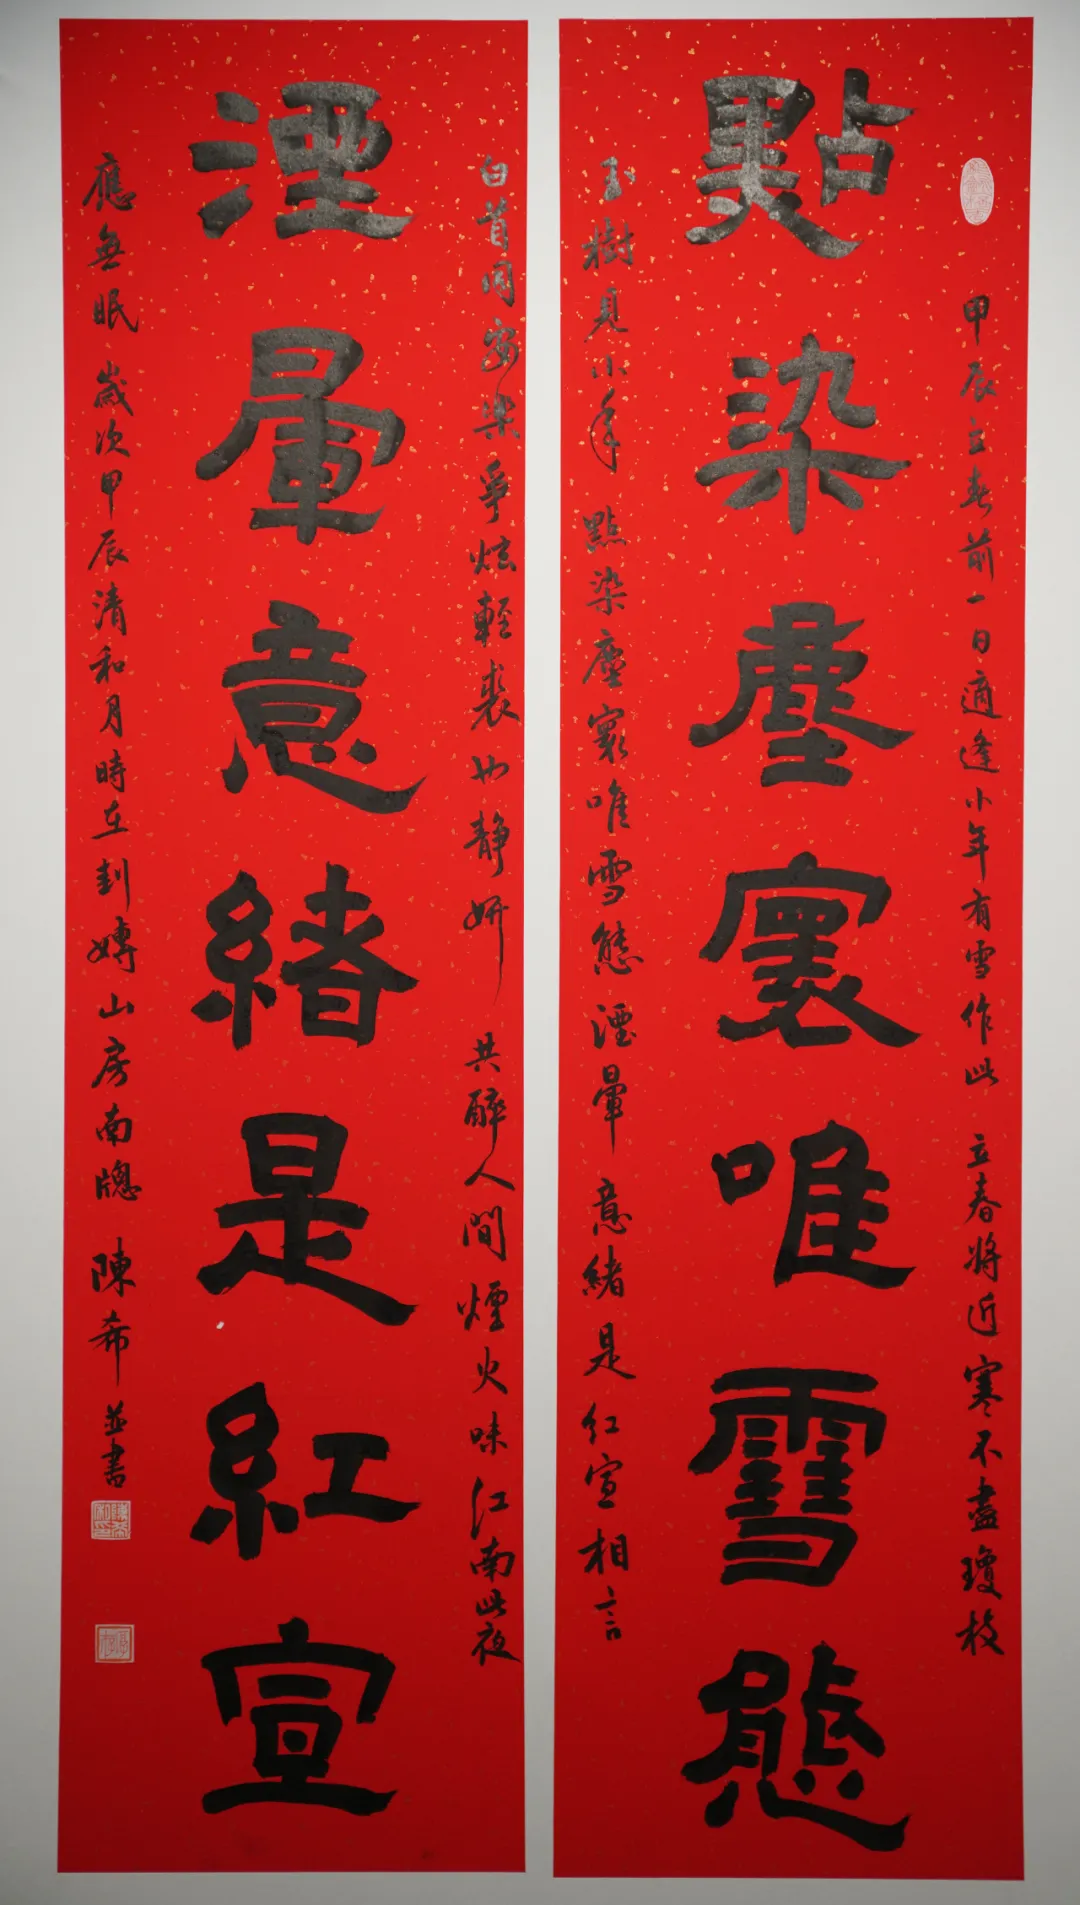 點染塵寰唯雪態
甲辰立春前一日適逢小年有雪作此 立春將近寒不盡瓊枝
玉樹見小年點染塵寰唯雪態湮暈意緒是紅宣相言
湮暈意緒是紅宣
白首同安樂爭炫輕裘也靜妍 共醉人間煙火味江南此夜
應無眠 歲次甲辰清和月時在對嫥山房南牕 陳希並書